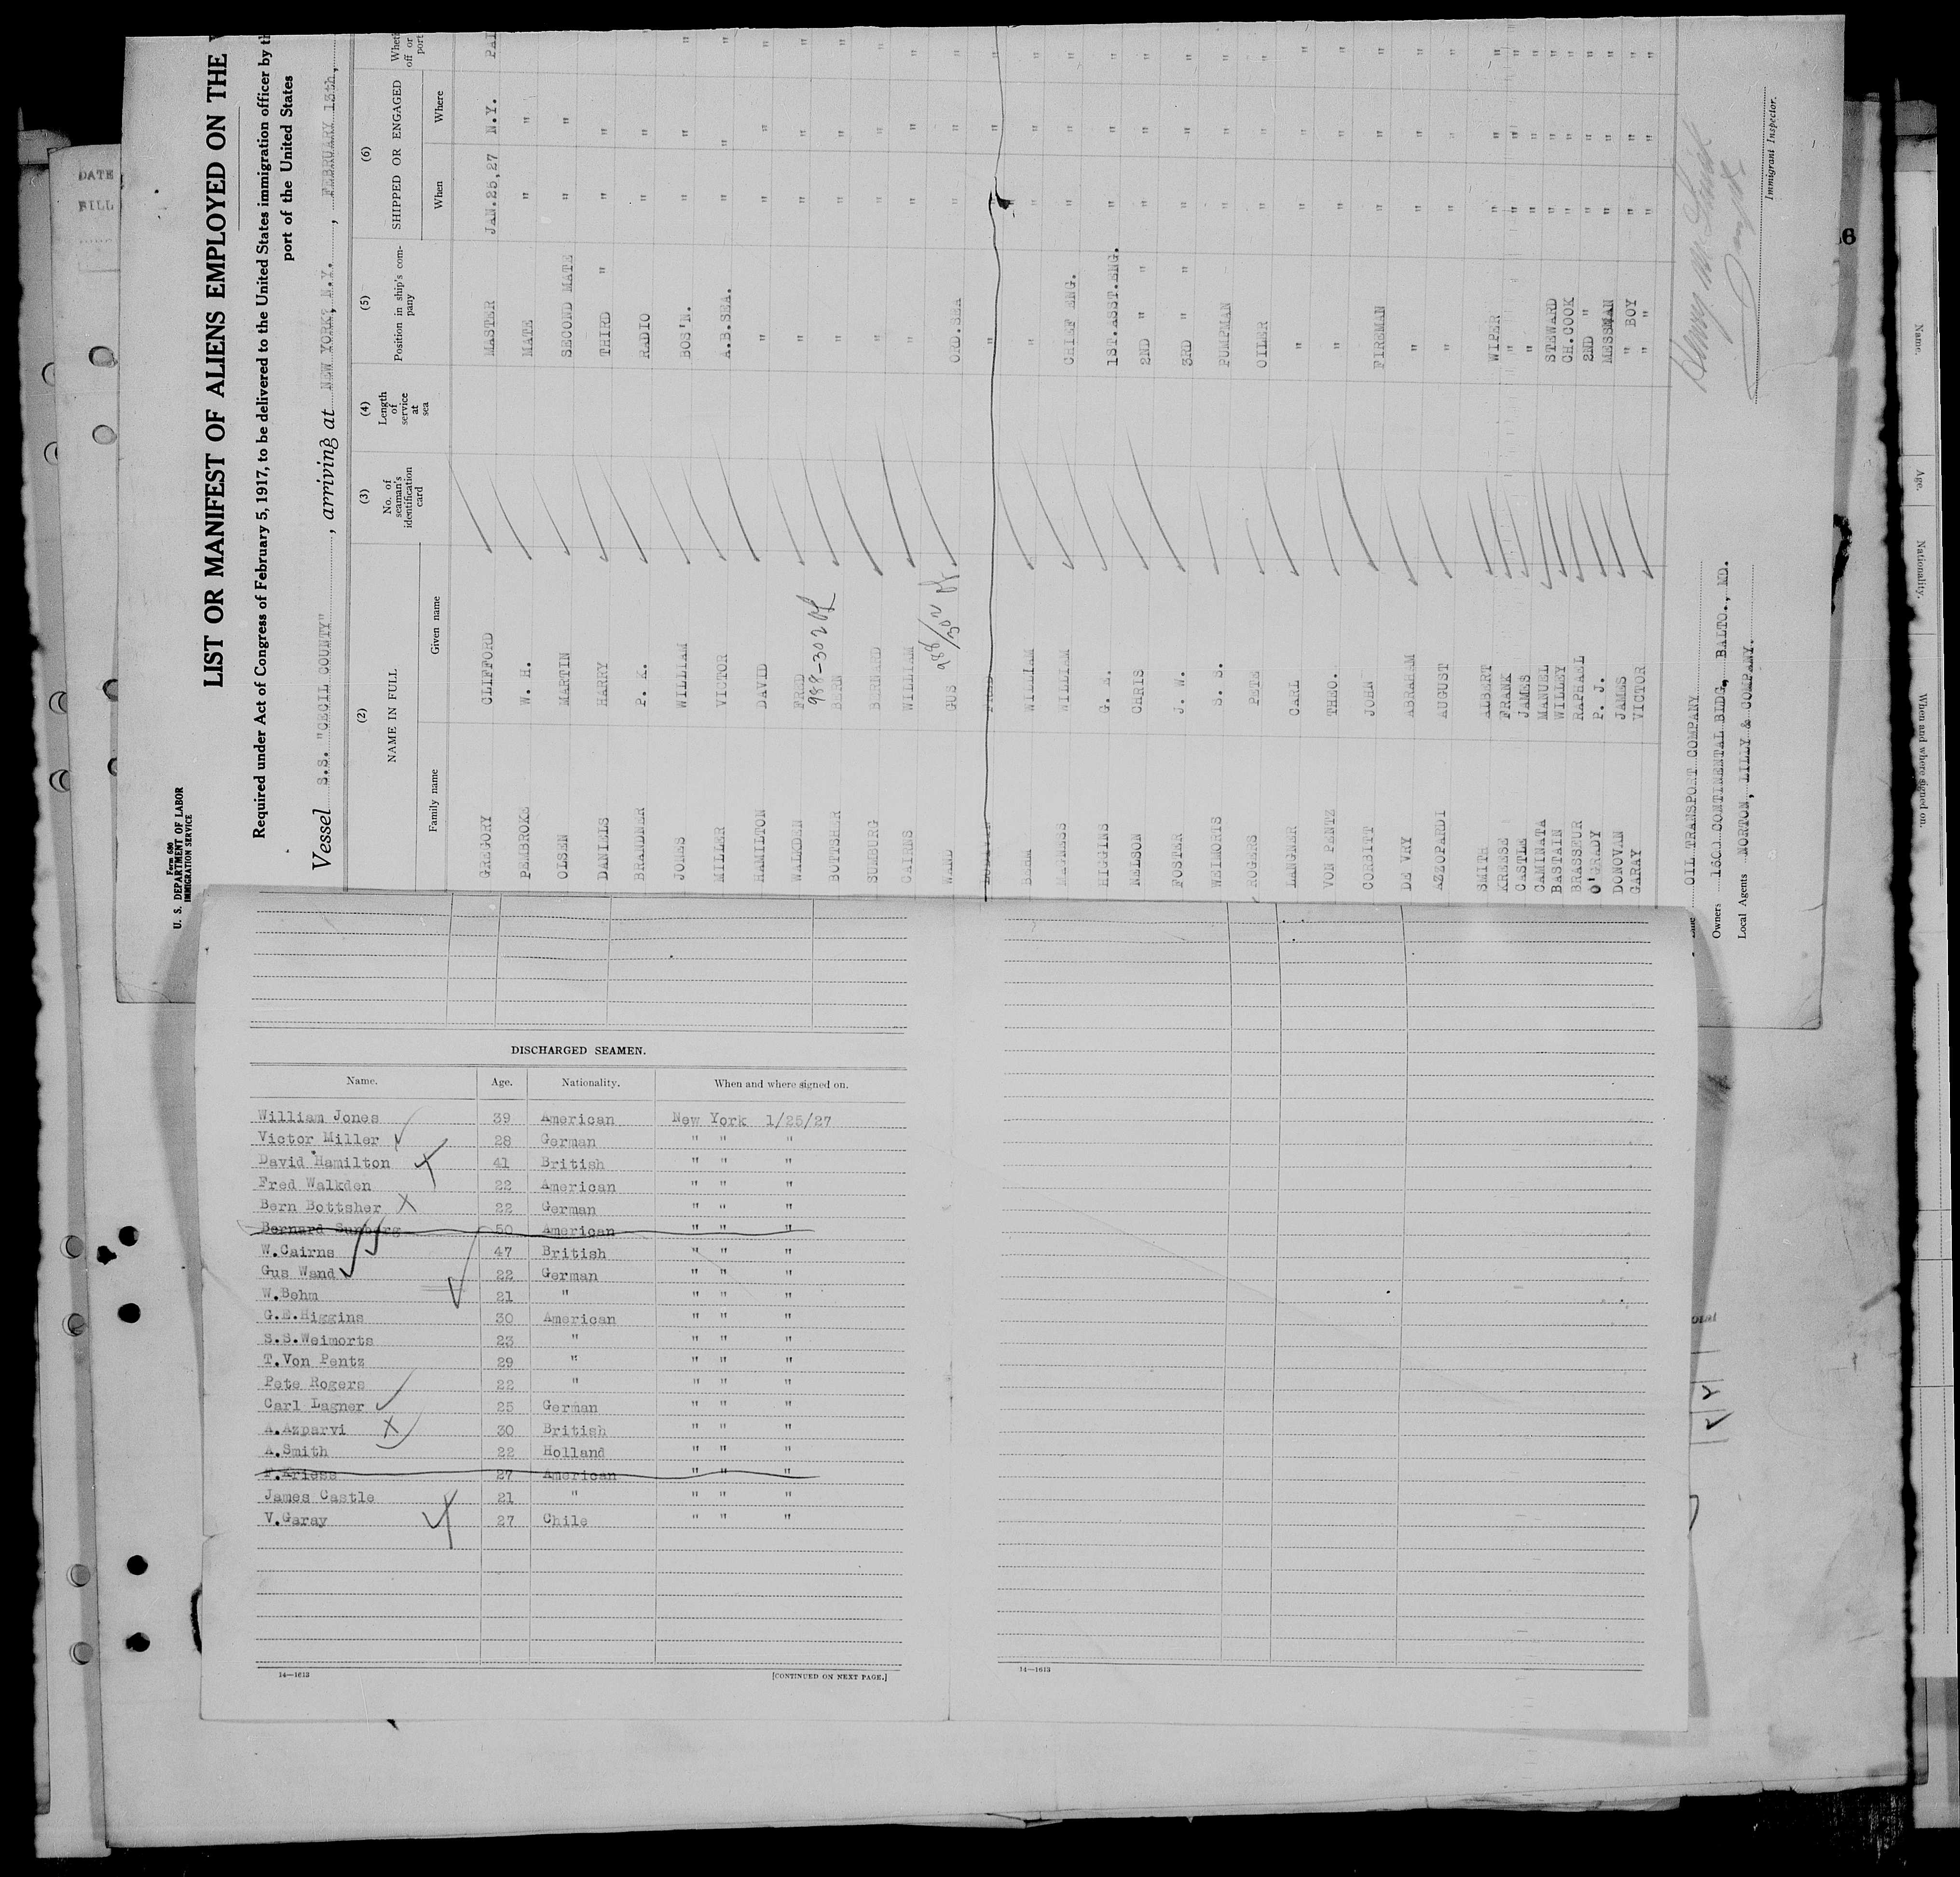 Form 680
U. S. DEPARTMENT OF LABOR
IMMIGRATION SERVICE
LIST OR MANIFEST OF ALIENS EMPLOYED ON THE
Required under Act of Congress of February 5, 1917, to be delivered to the United States immigration officer by th
port of the United States
Vessel S.S. "CECIL COUNTY", arriving at NEW YORK, N.Y., FEBRUARY 13th,
(2) (3) (4) (5) (6)
NAME IN FULL No. of seaman's identification card Length of service at sea Position in ship's company SHIPPED OR ENGAGED
Family name Given name When Where
GREGORY CLIFFORD MASTER JAN.25,27 N.Y.
PEMBROKE W. H. MATE " "
OLSEN MARTIN SECOND MATE " "
DANIELS HARRY THIRD " " "
BRANDNER P. K. RADIO " " "
JONES WILLIAM BOS'N. " " "
MILLER VICTOR A.B.SEA. " " "
HAMILTON DAVID " " " "
WALKDEN FRED " " " "
988-302
BOTTSHER BERN " " " "
SUMBURG BERNARD " " " "
CAIRNS WILLIAM " " " "
WAND GUS ORD.SEA " " "
988/302
" " " "
BEHM WILLIAM " " " "
MAUNESS WILLIAM CHIEF ENG. " " "
HIGGINS G. E. 1ST.ASST.ENG. " " "
NELSON CHRIS 2ND " " " " "
FOSTER J. W. 3RD " " " " "
WEIMORTS S. S. PUMPMAN " " "
ROGERS PETE OILER " " "
LANGNER CARL " " " "
VON PENTZ THEO. " " " "
CORBITT JOHN FIREMAN " " "
DE VRY ABRAHAM " " " "
AZZOPARDI AUGUST " " " "
SMITH ALBERT WIPER " " "
KREESE FRANK " " " "
CASTLE JAMES " " " "
CAMINATA MANUEL STEWARD " " "
BASTAIN WILLEY CH.COOK " " "
BRASSEUR RAPHAEL 2ND " " " "
O'GRADY P. J. MESSMAN " " "
DONOVAN JAMES " BOY " " "
GARAY VICTOR " " " " "
OIL TRANSPORT COMPANY
Owners 1500 CONTINENTAL BLDG., BALTO., MD.
Local Agents NORTON, LILLY & COMPANY.
Immigrant Inspector.
DISCHARGED SEAMEN.
Name. Age. Nationality. When and where signed on.
William Jones 39 American New York 1/25/27
Victor Miller 28 German " " "
David Hamilton 41 British " " "
Fred Walkden 22 American " " "
Bern Bottsher 22 German " " "
Bernard Sumberg 50 American " " "
W.Cairns 47 British " " "
Gus Wand 22 German " " "
W.Behm 21 " " " "
G.E.Higgins 30 American " " "
S.S.Weimorts 23 " " " "
T.Von Pentz 29 " " " "
Pete Rogers 22 " " " "
Carl Lagner 25 German " " "
A.Azparvi 30 British " " "
A.Smith 22 Holland " " "
F.Kriese 27 American " " "
James Castle 21 " " " "
V.Garay 27 Chile " " "
14—1613 [CONTINUED ON NEXT PAGE.]
14—1613
DATE
FILL
Name. Age. Nationality. When and where signed on.